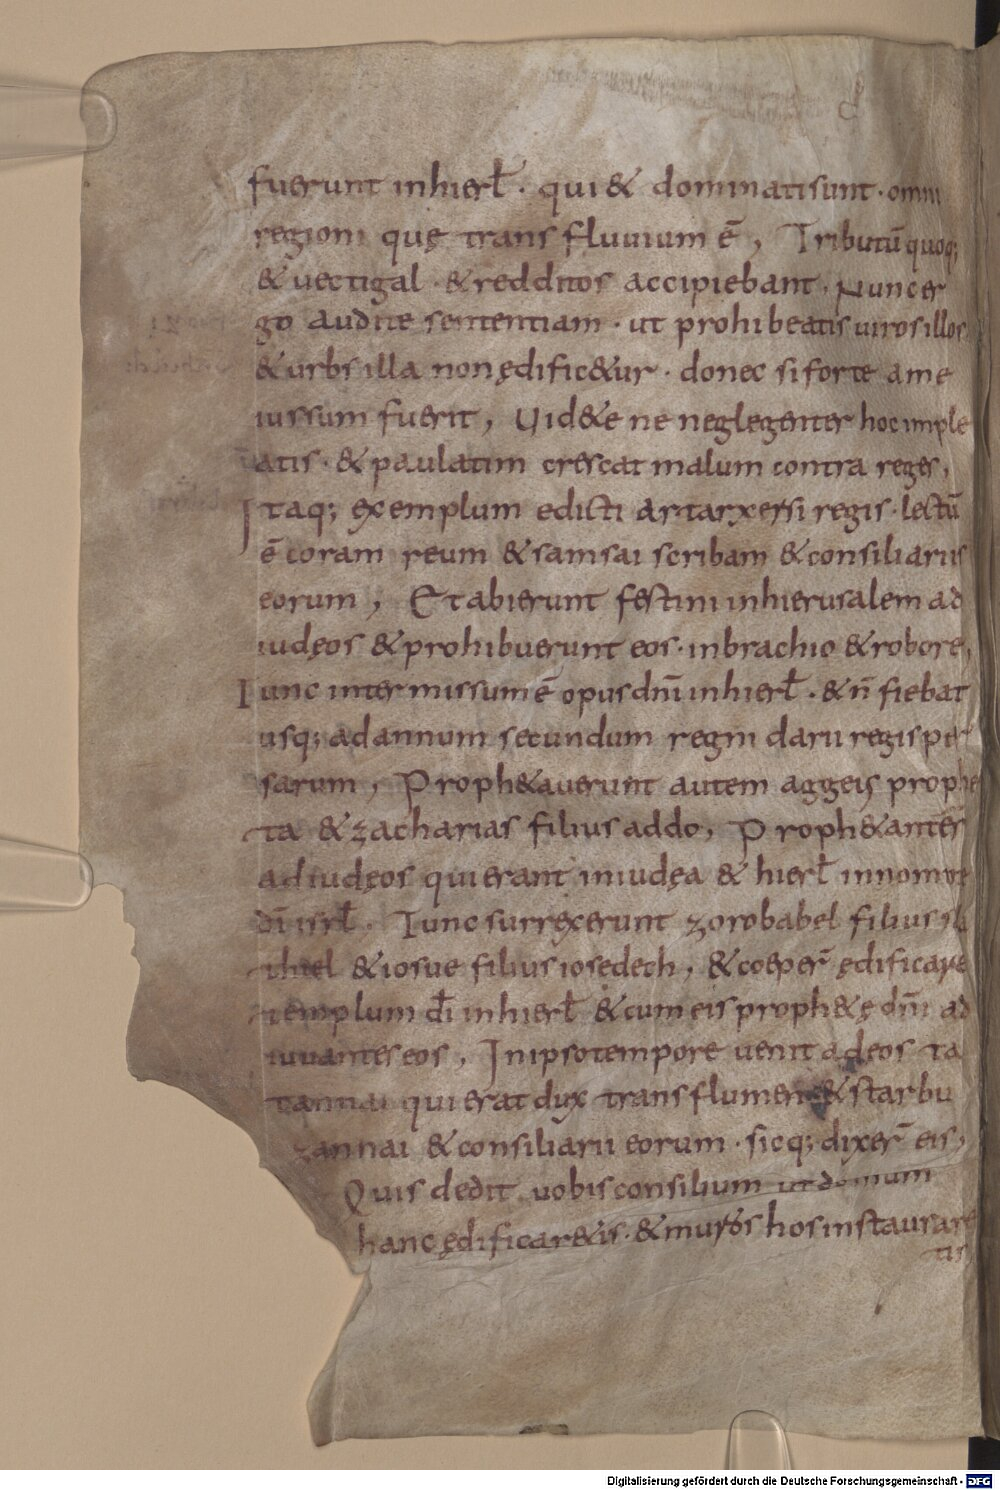 fuerunt inhierł · qui & dominatisunt · omni
regioni quę trans fluuium ē, Tributū quoq;
& uectigal · & redditos accipiebant · Nuncer
go audite sententiam · ut prohibeatis uirosillos
& urbs illa non ędific&ur · donec siforte ame
iussum fuerit, Uid&e ne neglegenter hoc imple
atis · & paulatim crescat malum contra reges,
Itaq; exemplum edicti artarxersi regis · lectū
ē coram reum & samsai scribam & consiliariis
eorum, Et abierunt festini inhierusalem ad
iudęos & prohibuerunt eos · inbrachio & robore,
Tunc intermissum ē opus dn̄i inhierł · & n̄ fiebat
usq; adannum secundum regni darii regis per
sarum, Proph&auerunt autem aggeus prophe
ta & zacharias filius addo, Proph&antes
ad iudęos qui erant iniudęa & hierł innomine
dī isrł · Tunc surrexerunt zorobabel filius sla
thiel & iosue filius iosedech, & coeper̄ ędificare
templum dī inhierł & cum eis proph&ę dn̄i ad
iuuantes eos, Inipsotempore uenit adeos ta
tannai qui erat dux trans flumen & starbu
zannai & consiliarii eorum · sicq; dixer̄ eis,
Quis dedit uobis consilium ut domum
hanc ędificar&is · & muros hos instaurare
tis
Digitalisierung gefördert durch die Deutsche Forschungsgemeinschaft - DFG